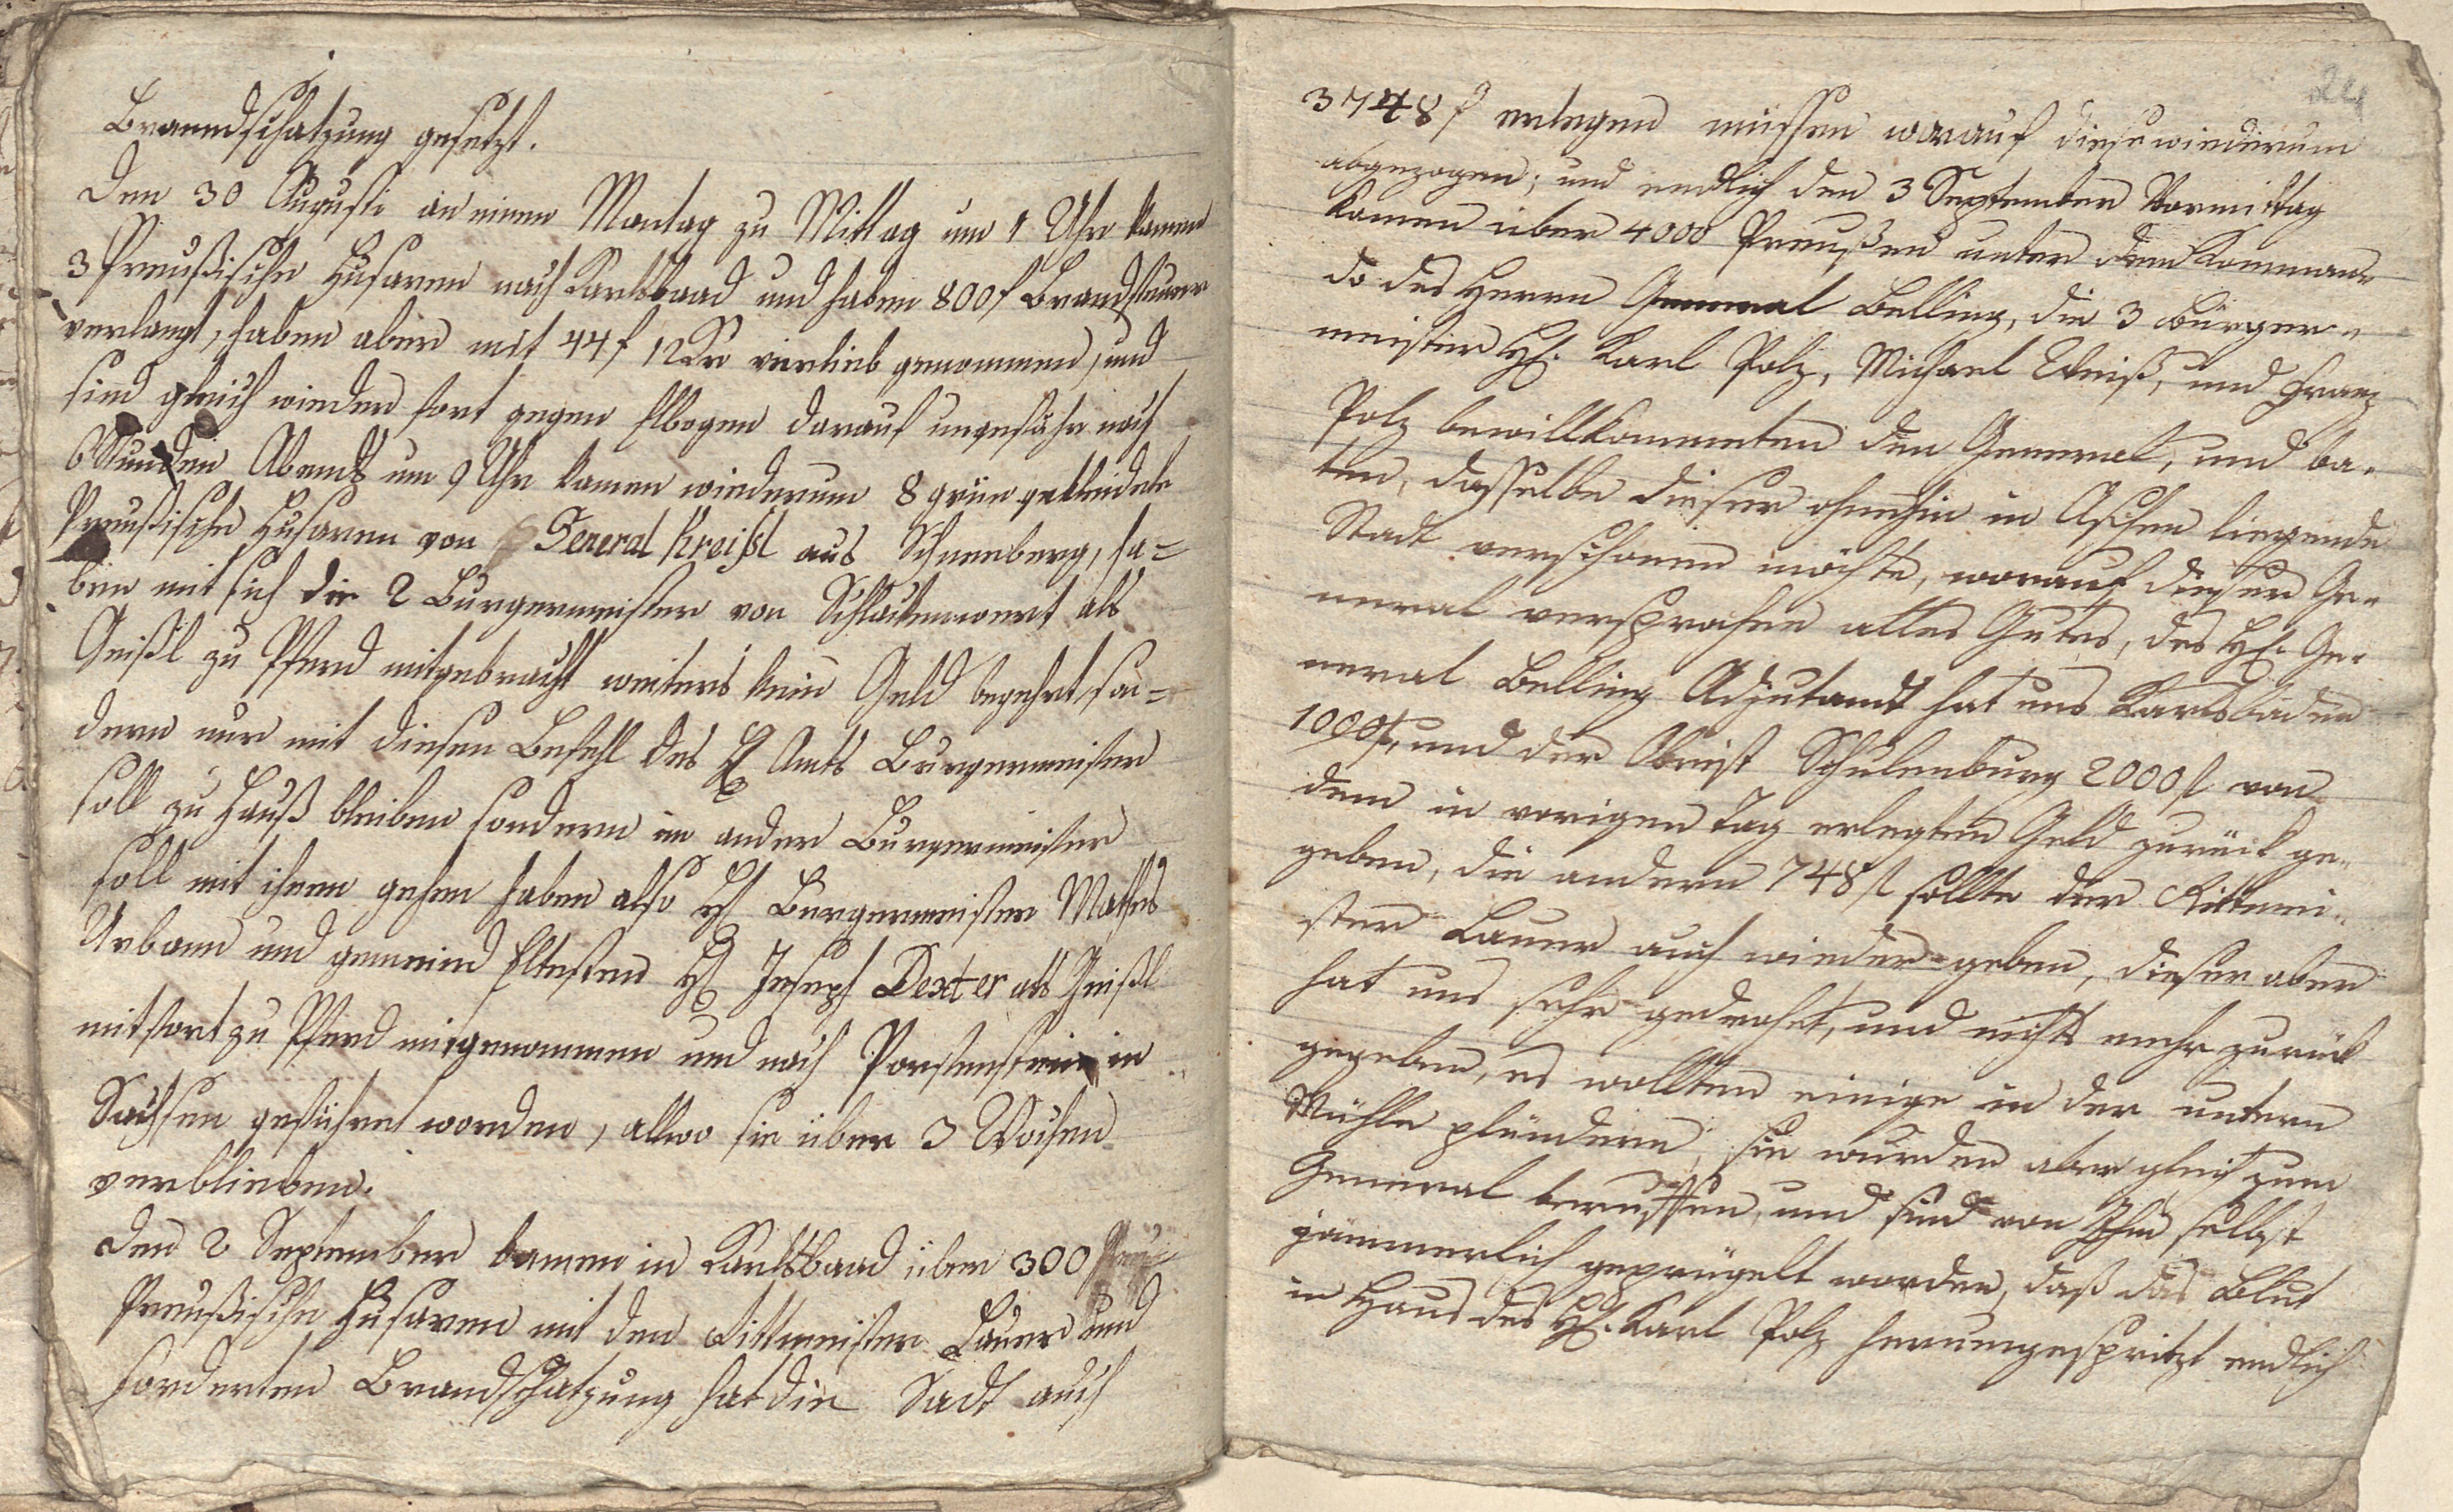 Branndschatzung gesetzt.
Den 30 Augusti an einen Montag zu Mittag um 1 Uhr kamen
3 Preußische Husaren nach Karlsbaad und haben 800f Brandsteuer
verlangt, haben aber mit 44f 12Kr vierlieb genommen, und
sind gleich wieder fort gegen Elbogen darauf ungefähr nach
6 Stunden Abends um 9 Uhr kamen wiederum 8 grün gekleidete
Preußische Husaren von General Kreißl aus Schneeberg, ha=
ben mit sich die 2 Burgermeister von Schlackenwert als
Geißl zu Pferd mitgebracht weiters kein Geld begehrt, son=
dern nur mit diesen Befehl des H Amts Burgermeister
soll zu Hauß bleiben sondern ein ander Burgermeister
soll mit ihnen gehen haben also H Burgermeister Mathes
Urbann und gemeind Eltesten H Joseph Dexter als Geißl
mitfort zu Pferd mitgenommen und nach Porstenstein in
Sachsen geführet worden, allwo sie über 3 Wochen
verblieben.
Den 2 September kamen in Karlsbaad über 300
Preußische Husaren mit den Rittmeister Lauer und
forderten Brandschatzung hat die Stadt auch
24
3748f erlegen müssen worauf diese wiederum
abgezogen; und endlich den 3 September Vormittag
kamen über 4000 Preußen unter dem Komman=
do des Herrn General Belling, die 3 Bürger=
meister H. Karl Polz, Michael Weiß, und Franz
Polz bewillkommten den General, und ba=
ten, dasselbe dieser ohnehin in Aschen liegende
Stadt verschonen möchte, worauf dieser Ge=
neral versprochen alles Gutes, des H. Ge=
neral Belling Adjutandt hat uns Karlsbader
1000f, und der Obrist Schulenburg 2000f von
dem in vorigen Tag erlegten Geld zurück ge=
geben, die andern 748f sollte der Rittmei=
ster Lauer auch wieder=geben, dieser aber
hat uns sehr gedrohet, und nichts mehr zurück
gegeben, es wollten einige in der untern
Mühle plündern, sie wurden aber gleich zum
General beruffen, und sind von Ihm selbst
jämmerlich geprügelt worden, daß das Blut
in Haus des H. Karl Polz herumgespritzt endlich